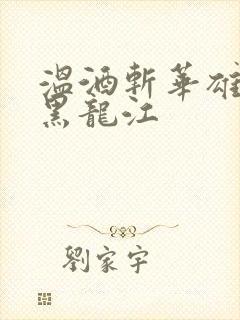 溫酒斬華雄
黑龍江
劉家宇